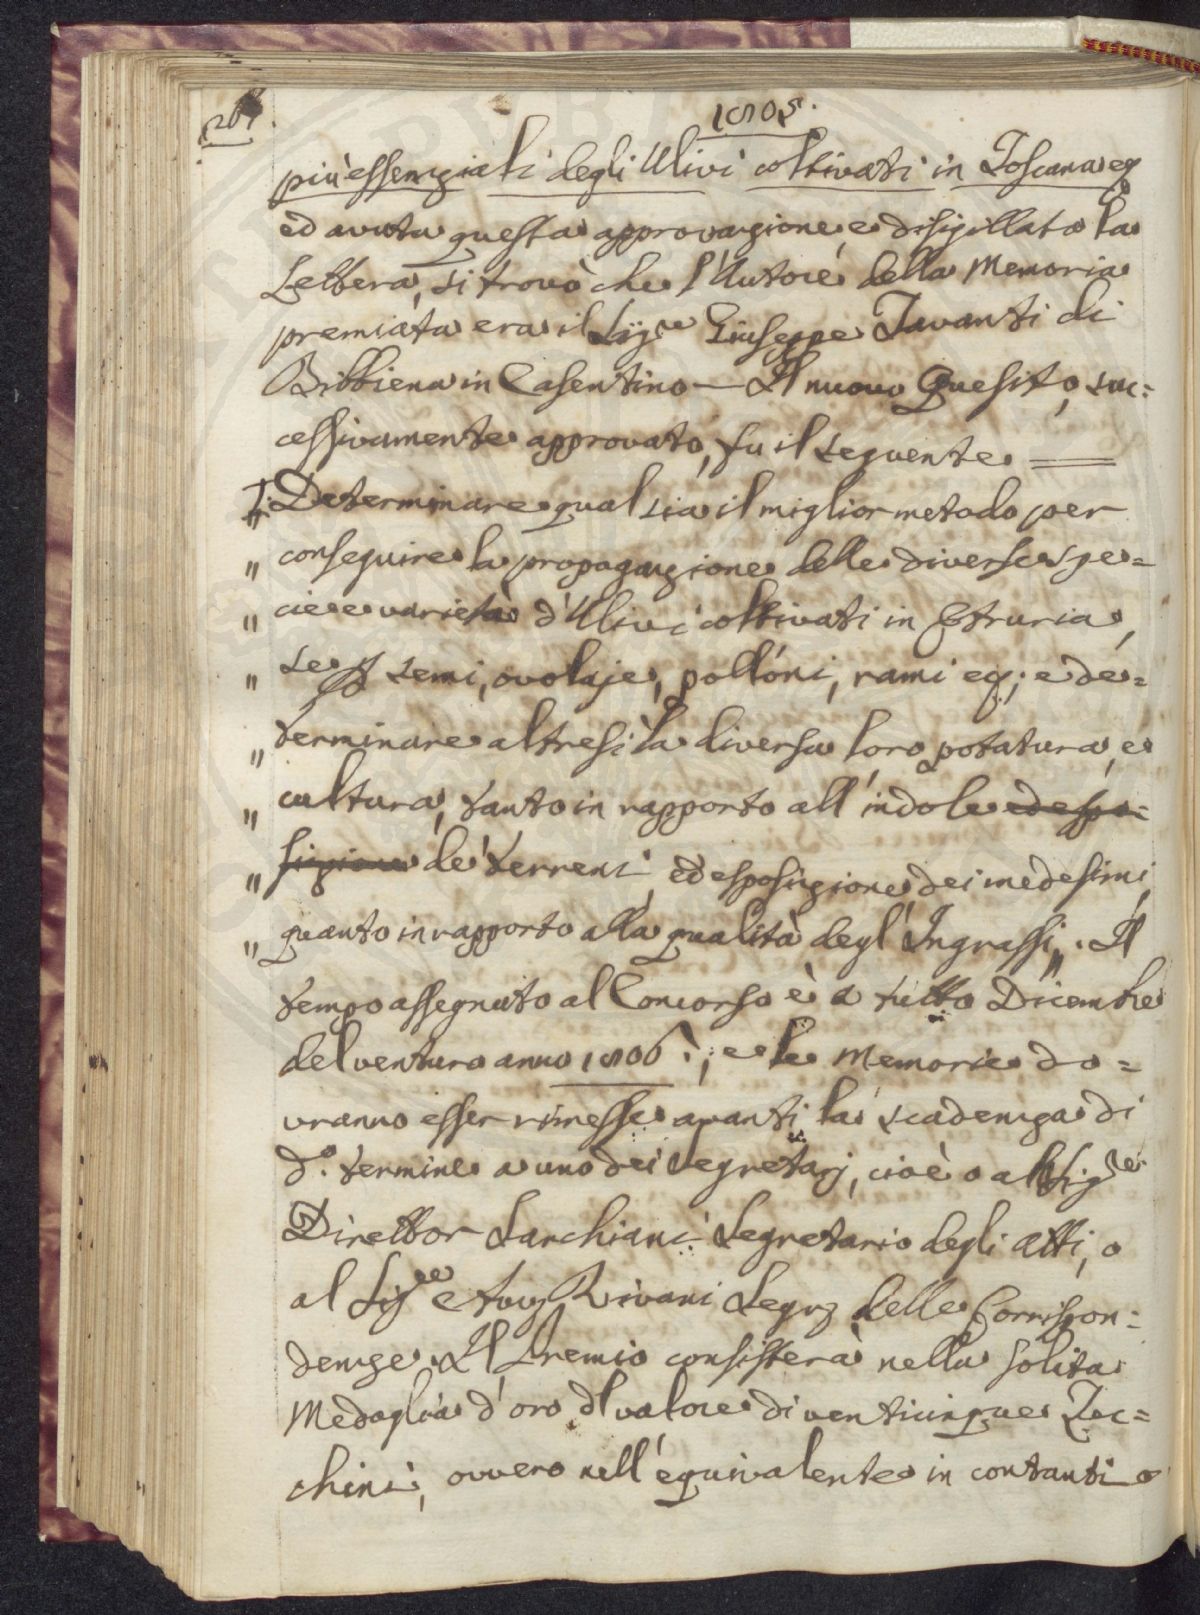 1805.
più essenziali degli Ulivi coltivati in Toscana eç
ed avuta questa approvazione, e disigillata la
Lettera, si trovò che l'Autore della Memoria
premiata era il Sig.re Giuseppe Tavanti di
Bibbiena in Casentino — Il nuovo Quesito, suc=
cessivamente approvato, fu il seguente ==
„ Determinare qual sia il miglior metodo per
„ conseguire la propagazione delle diverse spe=
„ cie e varietà d'Ulivi coltivati in Etruria,
„ se semi, ovolaje, pollóni, rami eç; e de=
„ terminare altresì la diversa loro potatura, e
„ cultura, tanto in rapporto all'indole ed espo=
„ sizione de' terreni, ed esposizione dei medesimi,
„ quanto in rapporto alla qualità degl'Ingrassi „. Il
tempo assegnato al Concorso è a tutto Dicembre
del venturo anno 1806.; e le Memorie do=
vranno esser rimesse avanti la scadenza di
d.o termine a uno dei Segretarj, cioè o al Sig.re
Direttor Sarchiani Segretario degli Atti, o
al Sig.re Rivani Segrȝ delle Corrispon=
denze. Il Premio consisterà nella solita
Medaglia d'oro del valore di venticinque Zec=
chini, ovvero nell'equivalente in contanti a